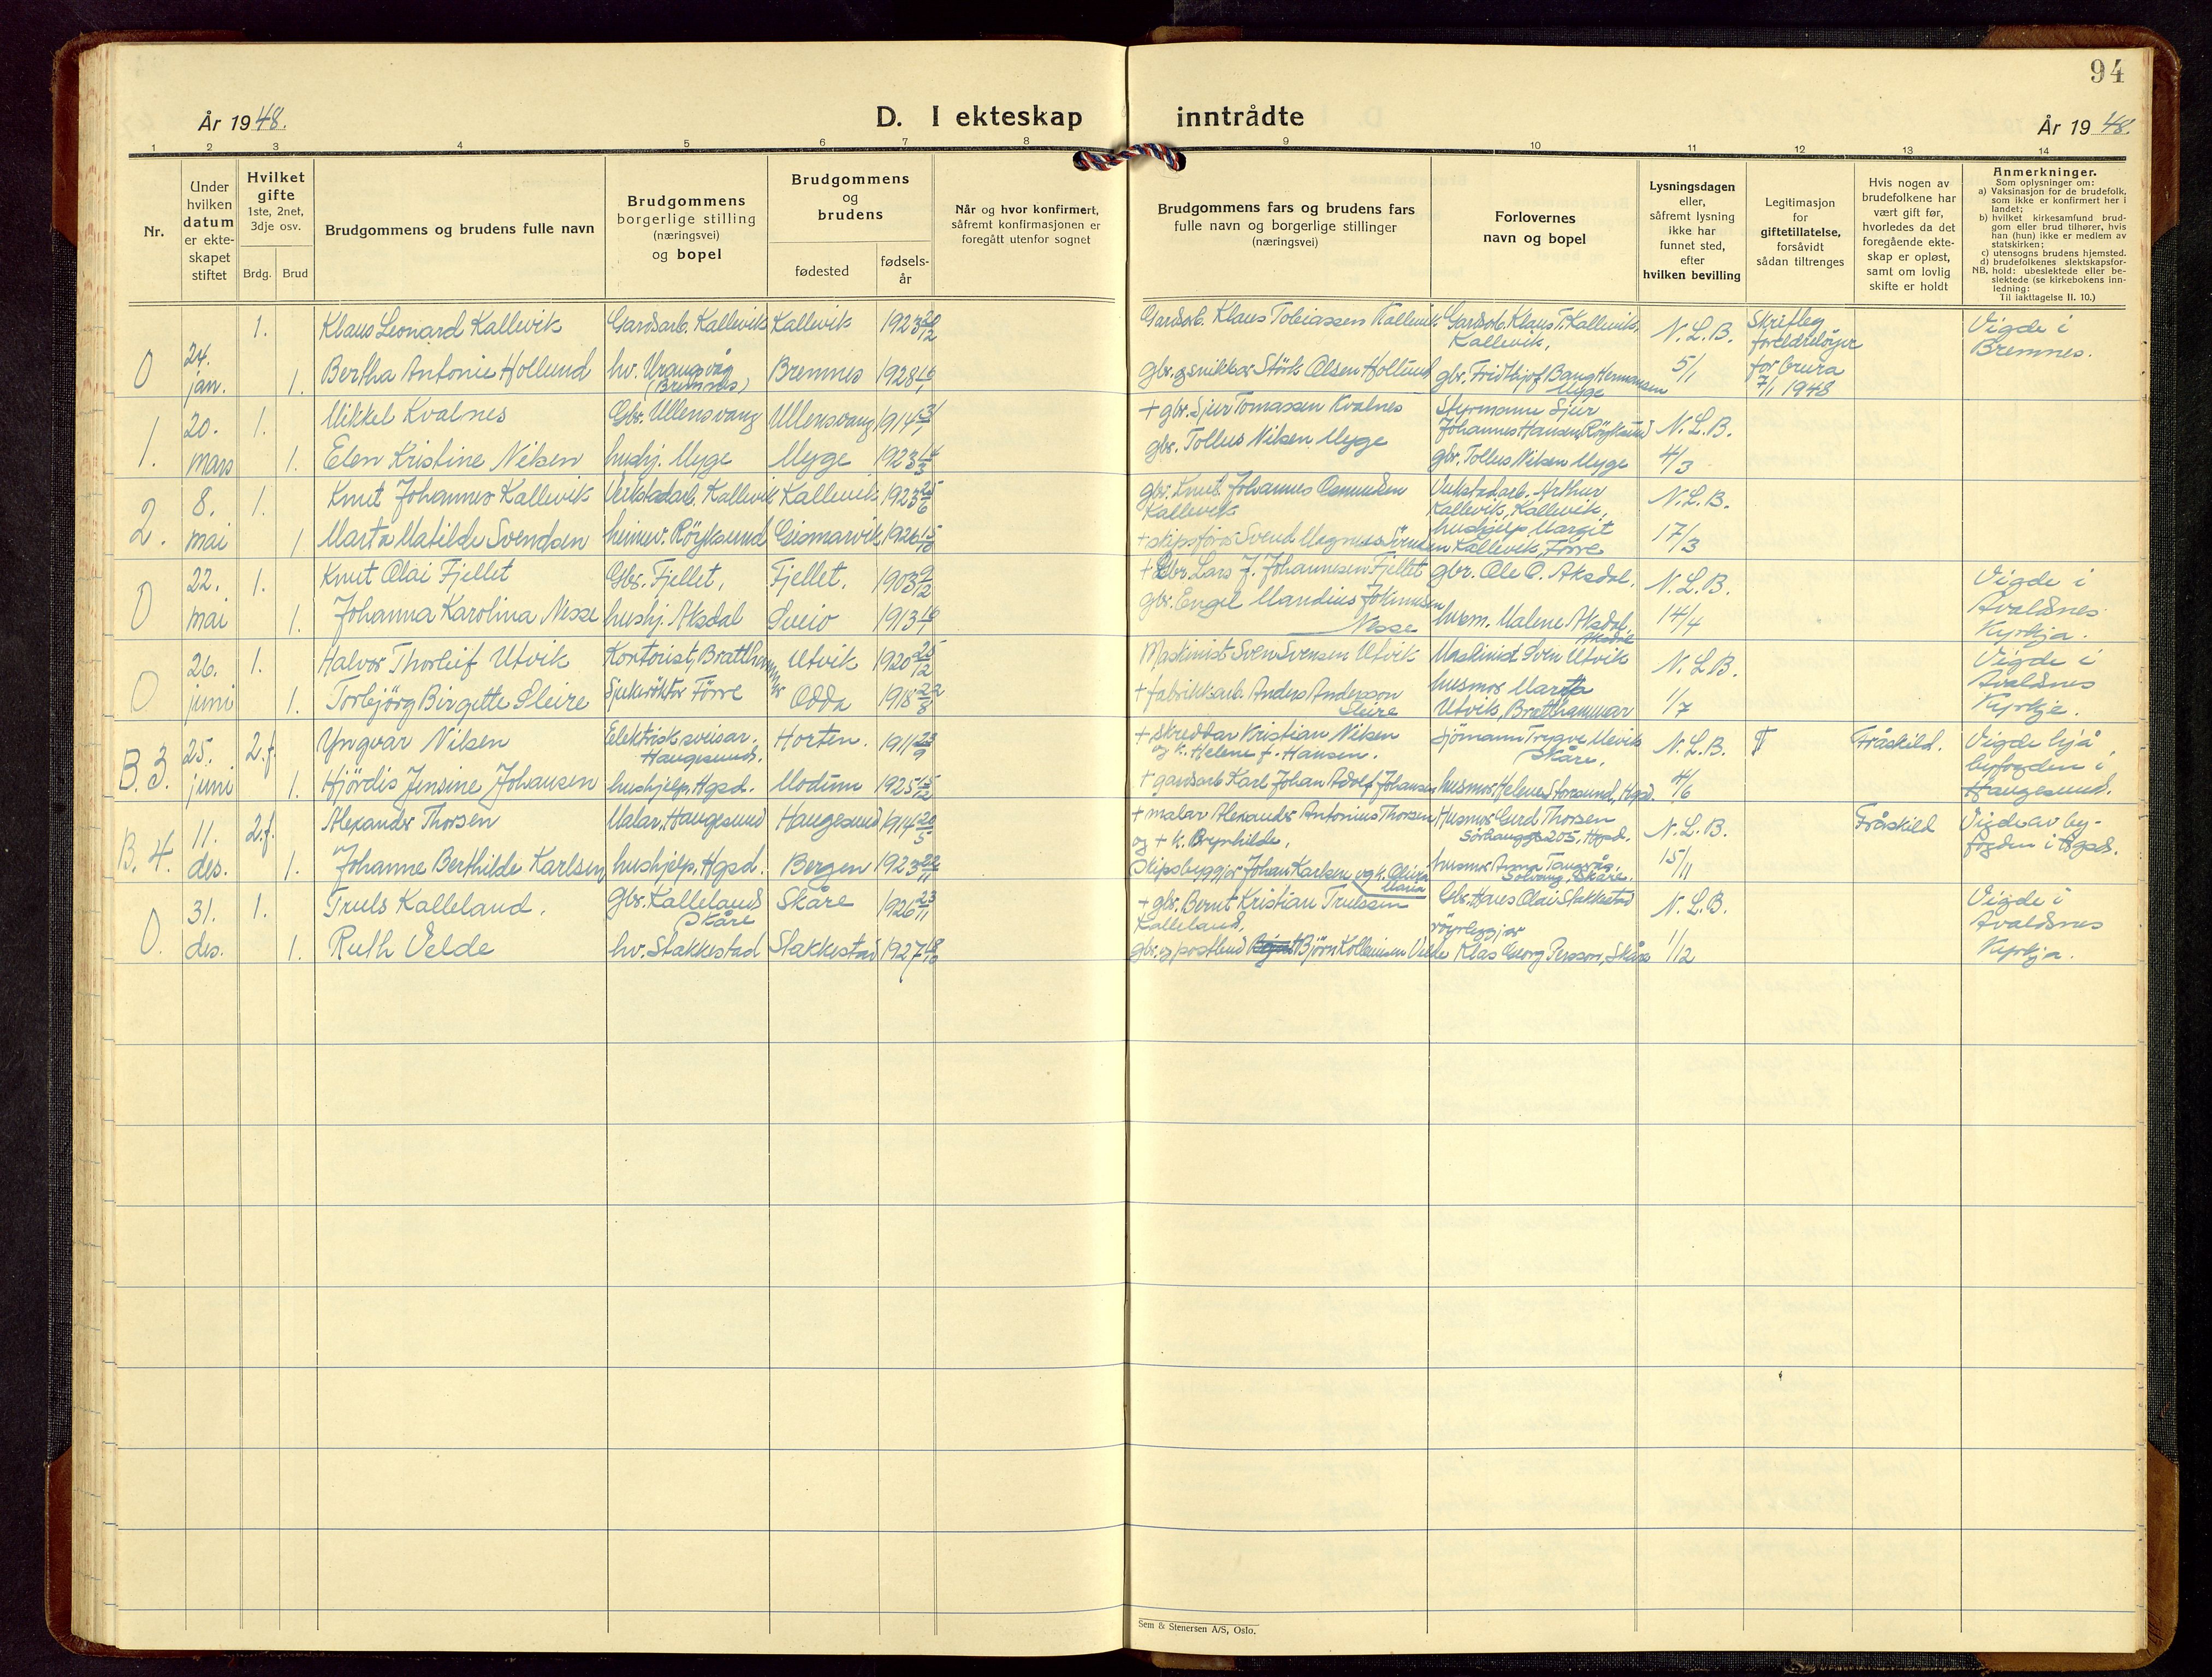 94
År 1948.
D. I ekteskap inntrådte
År 1948.
1 2 3 4 5 6 7 8 9 10 11 12 13 14
Nr.
Under hvilken datum er ekte-skapet stiftet
Hvilket gifte 1ste, 2net, 3dje osv.
Brdg. Brud
Brudgommens og brudens fulle navn
Brudgommens borgerlige stilling (næringsvei) og bopel
Brudgommens og brudens
fødested
fødsels-år
Når og hvor konfirmert, såfremt konfirmasjonen er foregått utenfor sognet
Brudgommens fars og brudens fars fulle navn og borgerlige stillinger (næringsvei)
Forlovernes navn og bopel
Lysningsdagen eller, såfremt lysning ikke har funnet sted, efter hvilken bevilling
Legitimasjon for giftetillatelse, forsåvidt sådan tiltrenges
Hvis nogen av brudefolkene har vært gift før, hvorledes da det foregående ekte-skap er opløst, samt om lovlig skifte er holdt
Anmerkninger.
Som oplysninger om:
a) Vaksinasjon for de brudefolk, som ikke er konfirmert her i landet;
b) hvilket kirkesamfund brud-gom eller brud tilhører, hvis han (hun) ikke er medlem av statskirken;
c) utensogns brudens hjemsted.
d) brudefolkenes slektskapsfor-
NB. hold: ubeslektede eller be-slektede (se kirkebokens inn-ledning:
Til iakttagelse II. 10.)
0 24. jan. 1. Klaus Leonard Kallevik Gardsarb. Kallevik Kallevik 1923 20/12 Gardsarb. Klaus Tobiassen Kallevik Gardsarb. Klaus T. Kallevik, Kallevik, N.L.B. 5/1 Skriftleg foreldreløyve for brura 7/1 1948 Vigde i Bremnes.
1. Bertha Antonie Hollund hv. Urangsvåg (Bremnes) Bremnes 1928 gbr. og snikkar Störk Olsen Hollund gbr. Fridthjof Bang Hermansen Myge
1. 20. mars 1. Mikkel Kvalnes Gbr. Ullensvang Ullensvang 1914 31/1 + gbr. Sjur Tomassen Kvalnes Styrmann Sjur Johannes Hansen, Röyksund N.L.B. 4/3
1. Elen Kristine Nilsen hushj. Myge Myge 1923 14/3 gbr. Tollus Nilsen Myge gbr. Tollus Nilsen Myge
2. 8. mai 1. Knut Johannes Kallevik Verkstadarb. Kallevik Kallevik 1923 25/6 gbr. Knut Johannes Osmundsen Kallevik Verkstadarb. Arthur Kallevik, Kallevik, N.L.B. 17/3
1 Marta Matilde Svendsen heimev. Röyksund Gismarvik 1926 15/10 + skipsförar Svend Magnus Svendsen hushjelp Margit Kallevik, Förre
0 22. mai 1. Knut Olai Fjellet Gbr. Fjellet, Fjellet. 1903 9/12 + Gbr. Lars J. Johannesen Fjellet gbr. Ole O. Aksdal, N.L.B. 14/4 Vigde i Avaldsnes Kyrkja.
1. Johanna Karolina Nesse hushj. Aksdal Sveio 1913 gbr. Engel Mandius Johannesen Nesse husm. Malene Aksdal, Aksdal
0 26. juni 1. Halvor Thorleif Utvik Kontorist, Bratthammer Utvik 1920 25/12 Maskinist Sven Svensen Utvik Maskinist Sven Utvik N.L.B. 1/7 Vigde i Avaldsnes Kyrkje.
1. Torbjörg Birgitte Sleire Sjukerökter Förre Odda 1918 22/8 + fabrikkarb. Anders Andersson Sleire husmor Marta Utvik, Bratthammar
B. 3. 25. juni 2.f. Yngvar Nilsen Elektrisk sveisar. Haugesund. Horten. 1911 23/9 + skreddar Kristian Nilsen og k. Helene f. Hansen. Sjömann Trygve Skåre, N.L.B. 4/6 Fråskild. Vigde hjå byfogden i Haugesund.
1. Hjördis Jensine Johansen hushjelp, Hgsd. Modum 1925 15/12 + gardsarb. Karl Johan Adolf Johansen husmor Helene Storsund, Hgsd.
B. 4. 11. des. 2.f. Alexander Thorsen Malar, Haugesund Haugesund 1914 20/5 + malar Alexander Antonius Thorsen og + k. Brynhilde, Husmor Gurd Thorsen Sörhauggt 205, Hgsd. N.L.B. 15/11 Fråskild Vigde av by-fogden i Hgsd.
1. Johanne Berthilde Karlsen hushjelp, Hgsd. Bergen 1923 22/11 Skipsbyggjar Johan Karlsen og k. Olivia Maria husmor Anna Tangvåg, Solvang, Skåre.
0. 31. des. 1. Truls Kalleland. Gbr. Kalleland Skåre Skåre 1926 23/11 + gbr. Bernt Kristian Trulssen Kalleland, Gbr. Hans Olai Stakkestad N.L.B. 1/12 Vigde i Avaldsnes Kyrkja.
1. Ruth Velde hv. Stakkestad Stakkestad 1927 18/10 gbr. og postbud Björn Kolbeinsen Velde röyrleggjar Klas Georg Persson, Skåre
Sem & Stenersen A/S, Oslo.